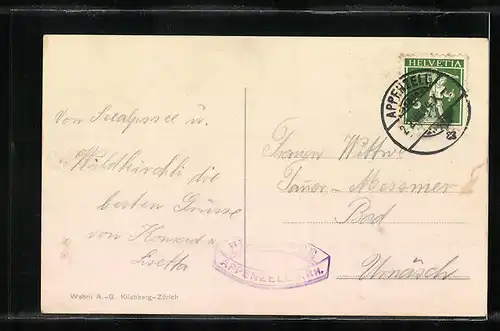 HELVETIA
APPENZELL
Von Seealpsee u.
Wildkirchli die
besten Grüsse
von Konrad u.
Lisetta
Frauen Wittwe
Sauer-Messmer
Bad
Urnäsch
APPENZELL I.RH.
Wehrli A.-G. Kilchberg-Zürich